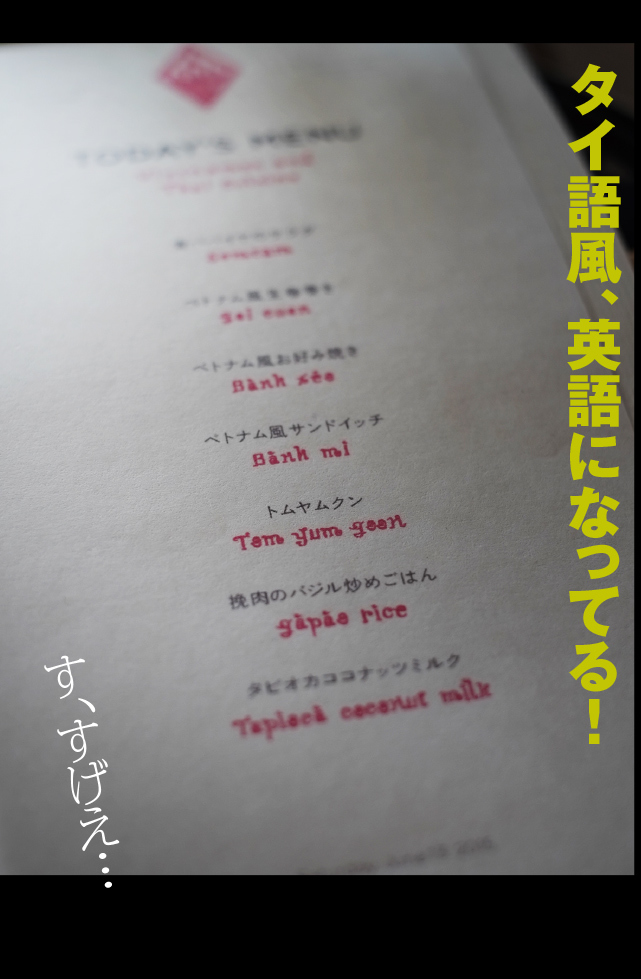 タイ語風、英語になってる！
TODAY'S MENU
ベトナム風生春巻き
goi cuon
ベトナム風お好み焼き
Bành xèo
ベトナム風サンドイッチ
Bành mì
トムヤムクン
Tom yum goon
挽肉のバジル炒めごはん
gàpào rice
タピオカココナッツミルク
Tapioca coconut milk
す、すげえ…